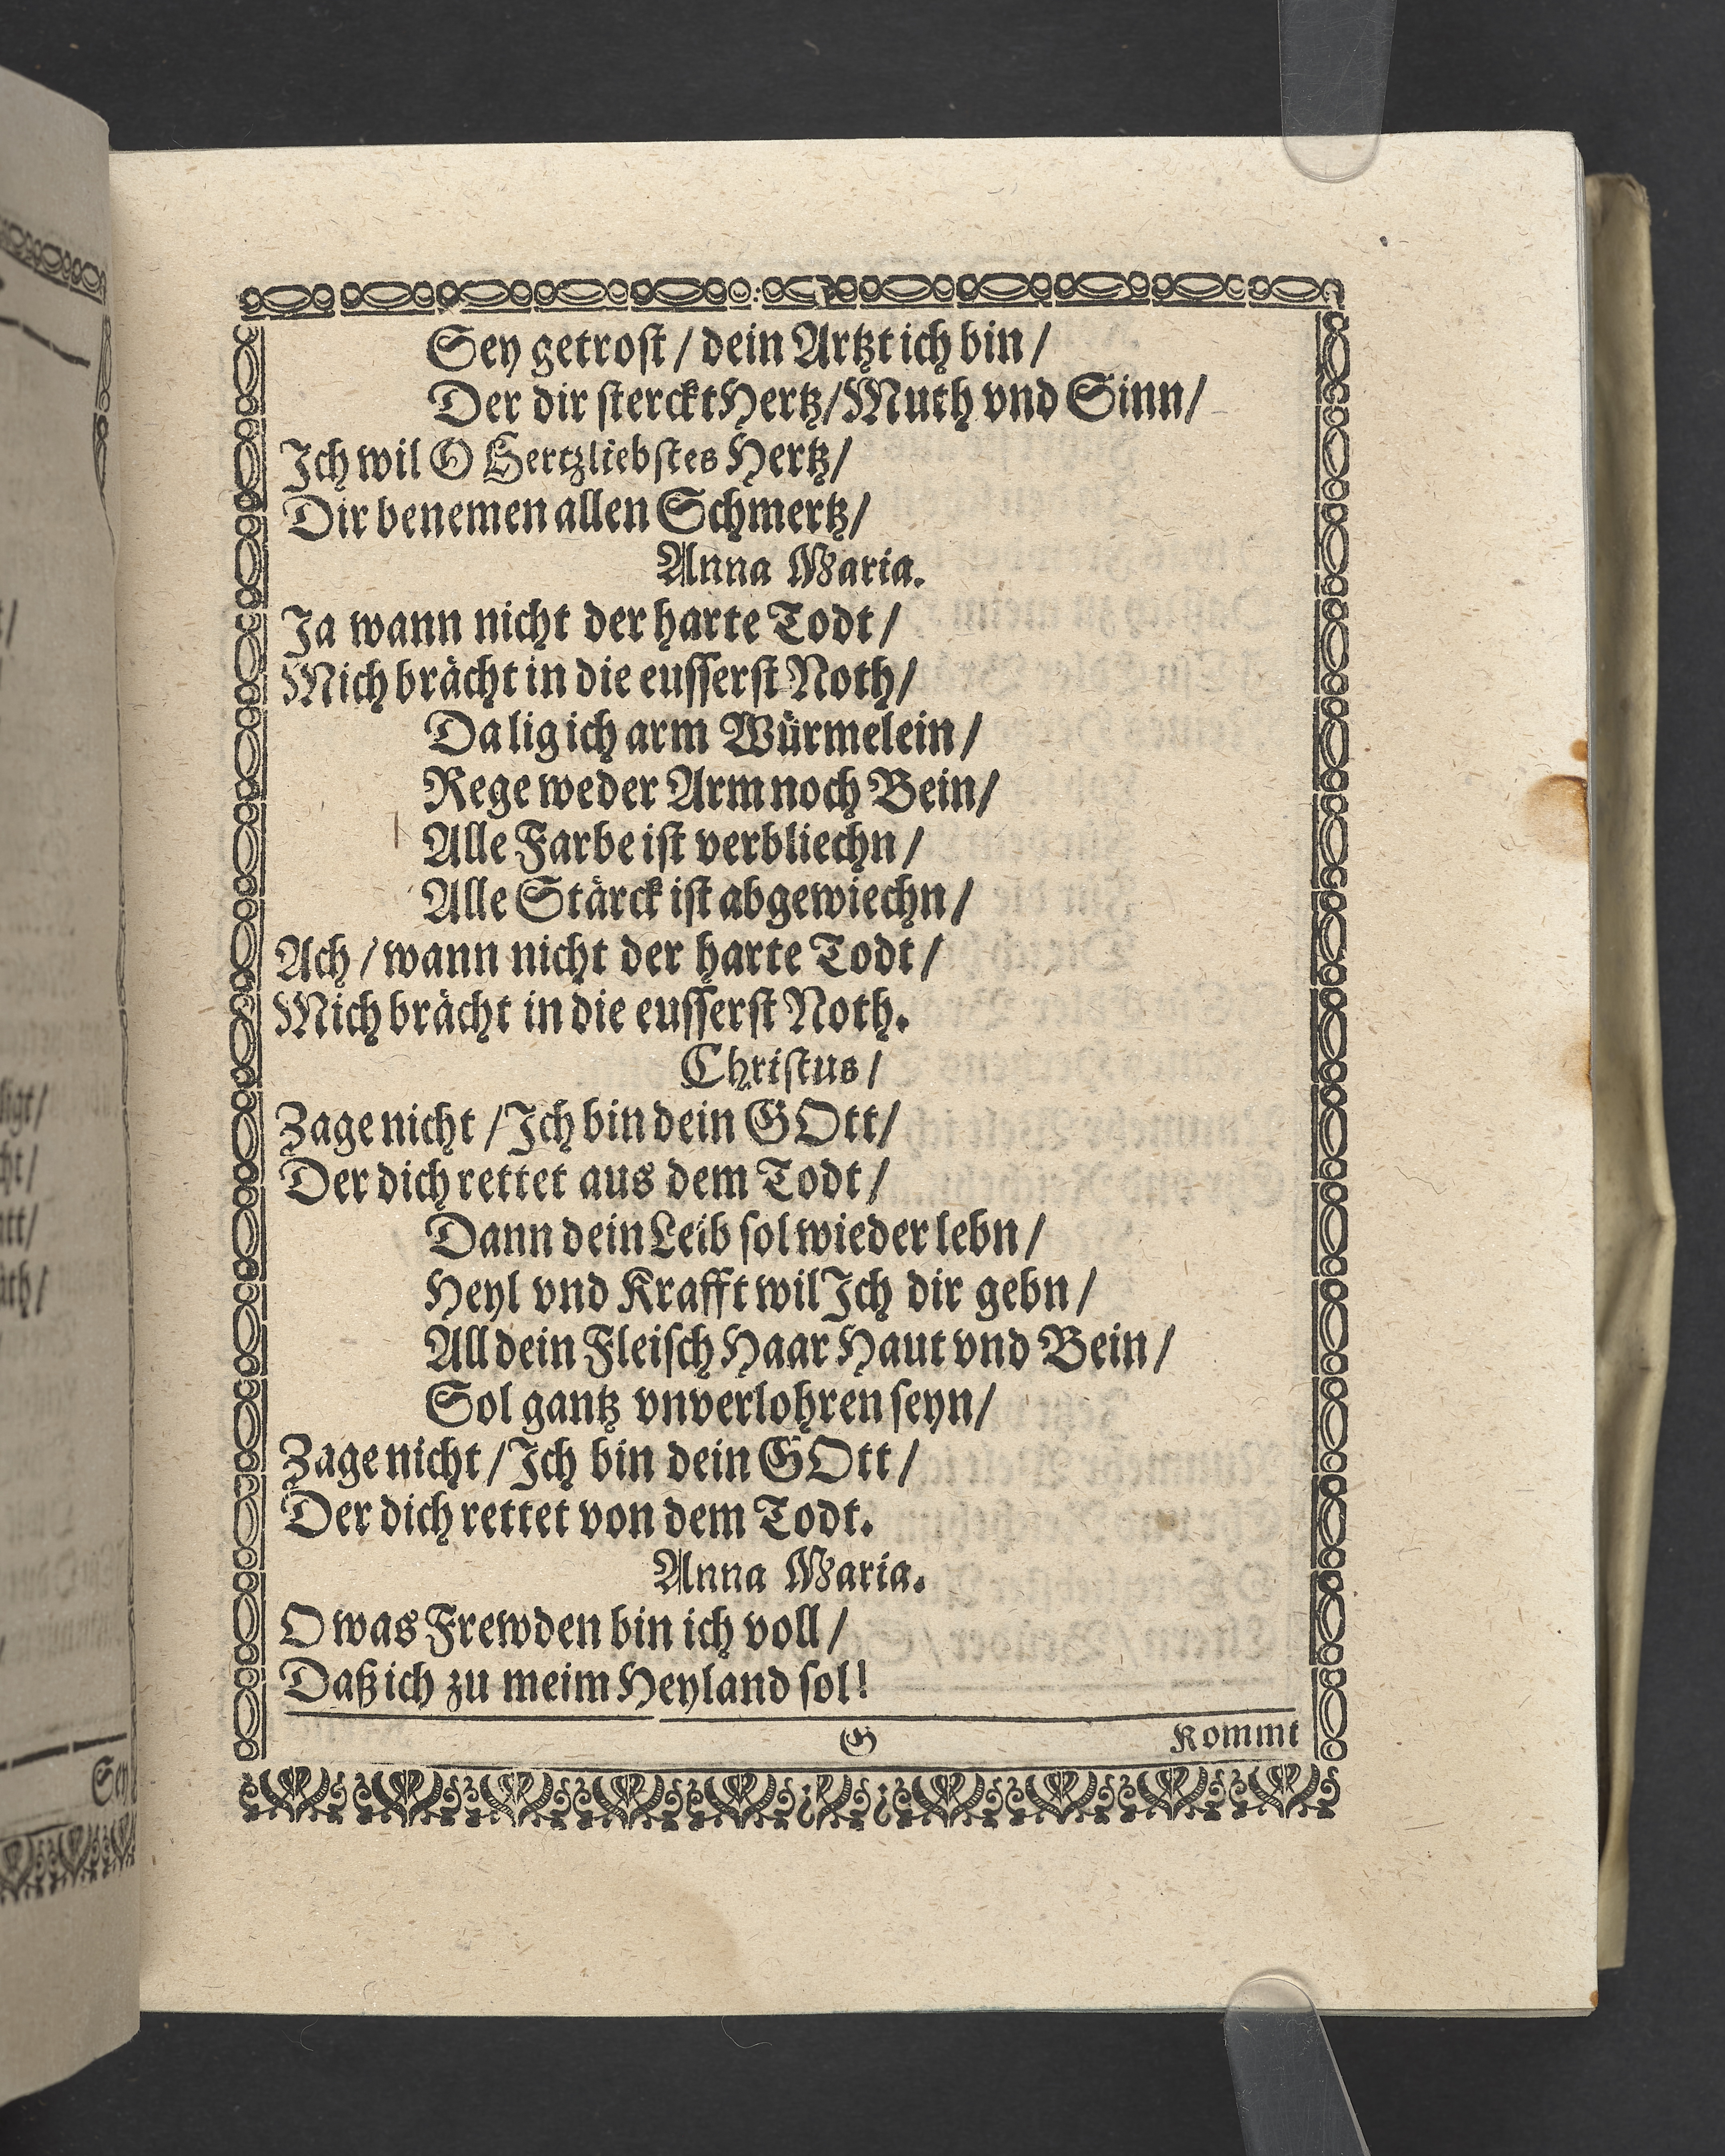 Sey getrost / dein Artzt ich bin /
Der dir sterckt Hertz / Muth vnd Sinn /
Ich wil O Hertzliebstes Hertz /
Dir benemen allen Schmertz /
Anna Maria.
Ja wann nicht der harte Todt /
Mich brächt in die eusserst Noth /
Da lig ich arm Würmelein /
Rege weder Arm noch Bein /
Alle Farbe ist verbliechn /
Alle Stärck ist abgewiechn /
Ach / wann nicht der harte Todt /
Mich brächt in die eusserst Noth.
Christus /
Zage nicht / Ich bin dein GOtt /
Der dich rettet aus dem Todt /
Dann dein Leib sol wieder lebn /
Heyl vnd Krafft wil Ich dir gebn /
All dein Fleisch Haar Haut vnd Bein /
Sol gantz vnverlohren seyn /
Zage nicht / Ich bin dein GOtt /
Der dich rettet von dem Todt.
Anna Maria.
O was Frewden bin ich voll /
Daß ich zu meim Heyland sol!
G Kommt